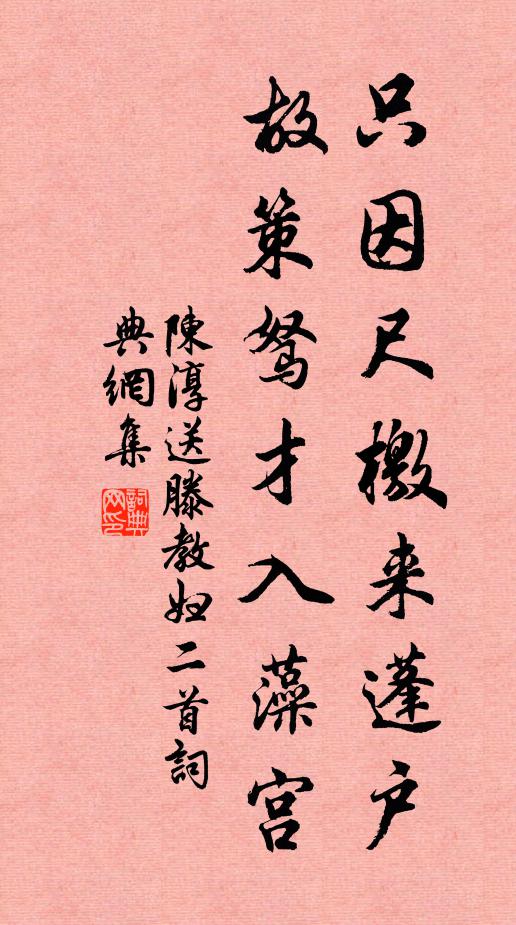 只因尺檄来蓬户
故策驽才入藻宫
陳淳送滕教妞二首詞
典網集
詞典網印